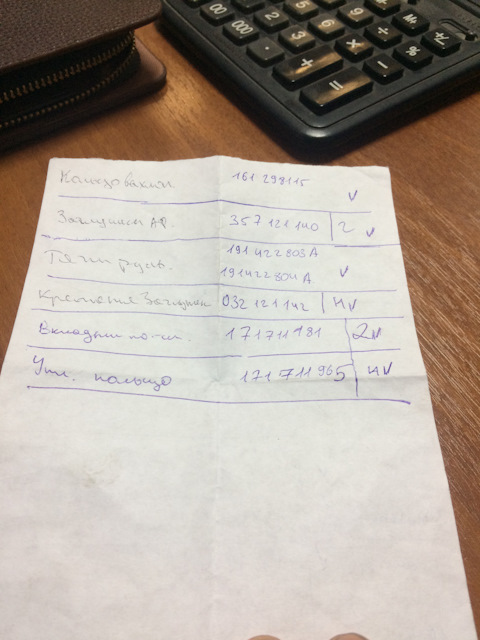 00 0 2 3 + M+
000 · 5 6 × - M-
3 × ÷ %
+ - +/-
=
Кольцо вакуум. 161 298115 V
Заглушка АР. 357 121 140 | 2 V
Тяги рулев. 191 422 803 A
191422804 A V
Крепление Заглушки 032 121 142 | 4V
Вкладыш 171711181 2V
Упл. кольцо 171 711 965 4V